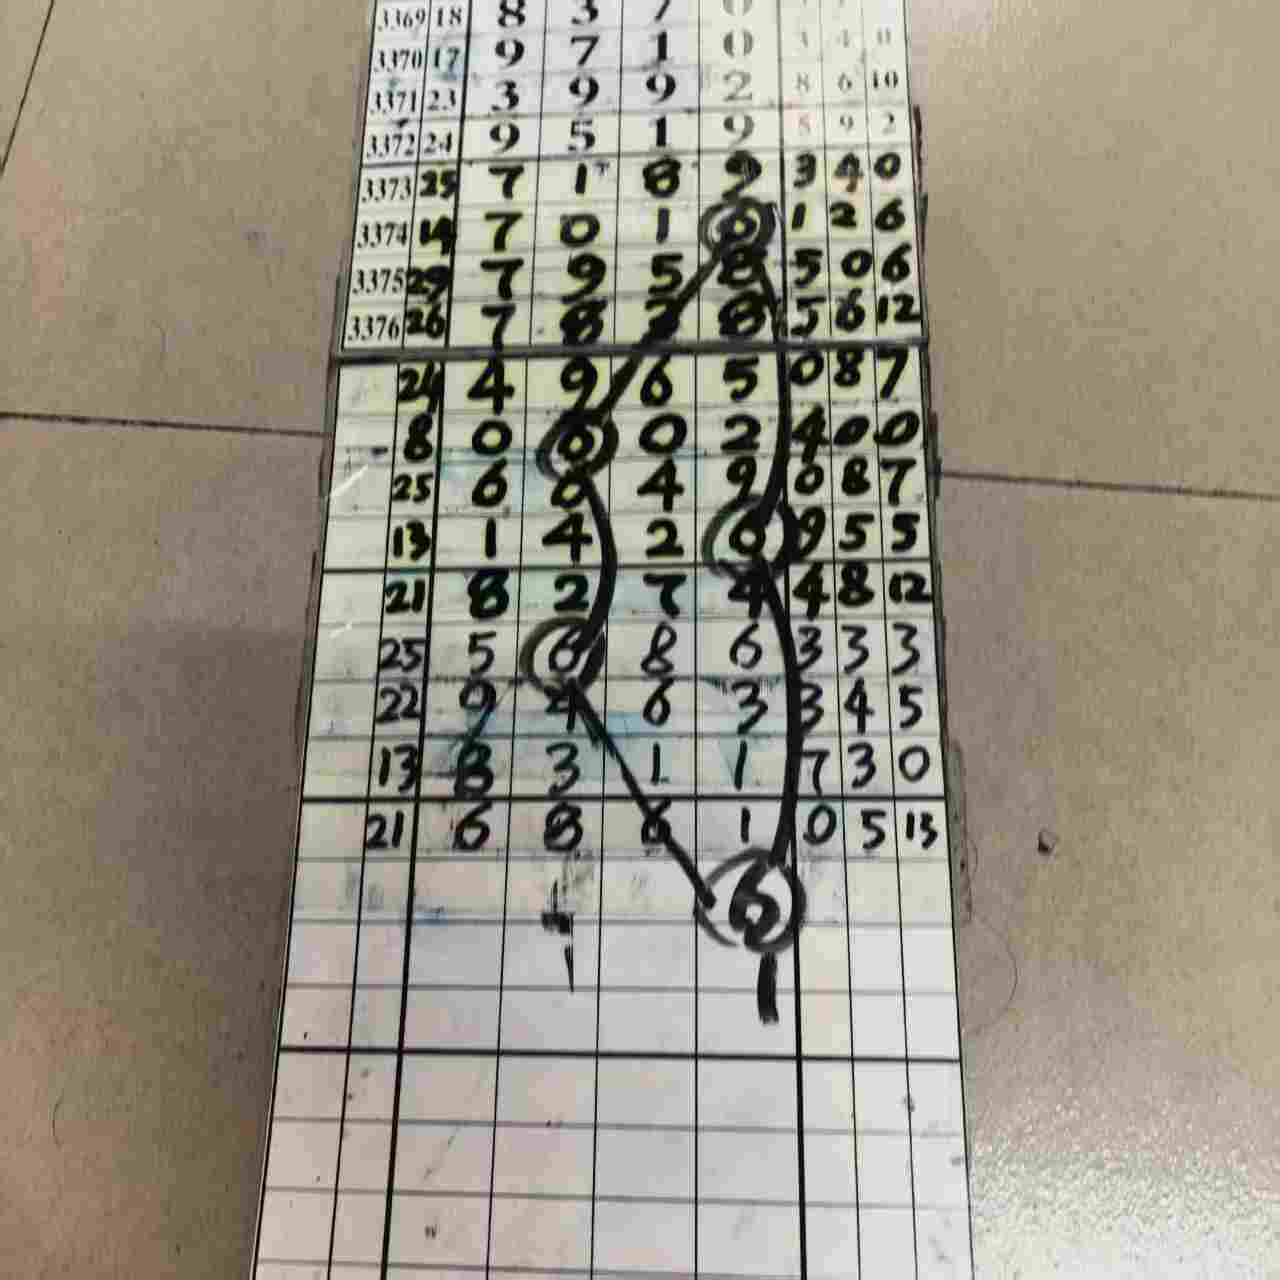 3369 18 8 3 7 0
3370 17 9 7 1 0 3 4 8
3371 23 3 9 9 2 8 6 10
3372 24 9 5 1 9 5 9 2
3373 25 7 1 8 9 3 4 0
3374 14 7 0 1 6 1 2 6
3375 29 7 9 5 8 5 0 6
3376 26 7 8 3 8 5 6 12
24 4 9 6 5 0 8 7
8 0 6 0 2 4 0 0
25 6 6 4 9 0 8 7
13 1 4 2 6 9 5 5
21 8 2 7 4 4 8 12
25 5 6 8 6 3 3 3
22 9 4 6 3 3 4 5
13 8 3 1 1 7 3 0
21 6 8 6 1 0 5 13
6